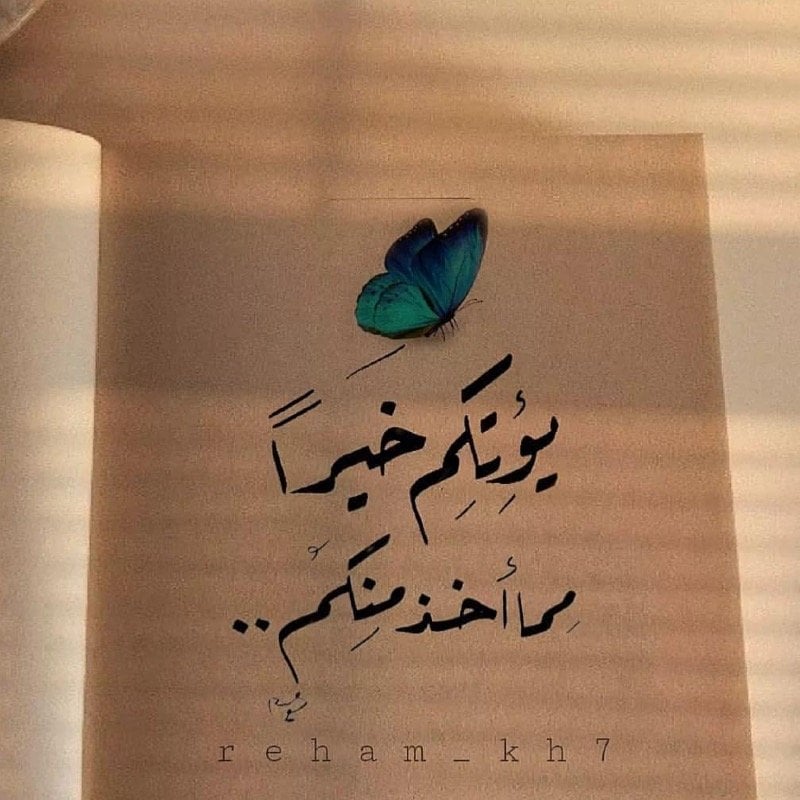 يؤتِكِم خيراً
مِما أخذ منِكُم..
reham_kh7